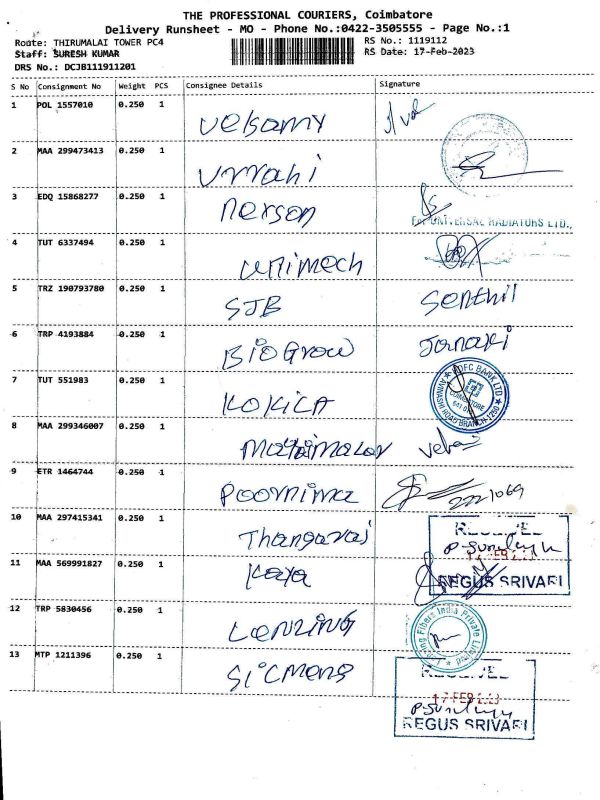 THE PROFESSIONAL COURIERS, Coimbatore
Delivery Runsheet - MO - Phone No.:0422-3505555 - Page No.:1
Route: THIRUMALAI TOWER PC4
RS No.: 1119112
Staff: SURESH KUMAR
RS Date: 17-Feb-2023
DRS No.: DCJB111911201
S No Consignment No Weight PCS Consignee Details Signature
1 POL 1557010 0.250 1 Velsamy
2 MAA 299473413 0.250 1 Vrrahi
3 EDQ 15868277 0.250 1 Nerson
For UNIVERSAL RADIATORS LTD.,
4 TUT 6337494 0.250 1 Unimech
5 TRZ 190793780 0.250 1 SJB Senthil
6 TRP 4193884 0.250 1 BIOGrow Janaki
HDFC BANK LTD
COIMBATORE
AVINASHI ROAD BRANCH
7 TUT 551983 0.250 1 KOKILA
8 MAA 299346007 0.250 1
9 ETR 1464744 0.250 1 Poornima
10 MAA 297415341 0.250 1 Thangaraj
RECEIVED
11 MAA 569991827 0.250 1 Kaya
REGUS SRIVARI
12 TRP 5830456 0.250 1 LENZING
Lenzing Fibers India Private Limited
13 MTP 1211396 0.250 1 SICMENS
RECEIVED
17 FEB 2023
REGUS SRIVARI